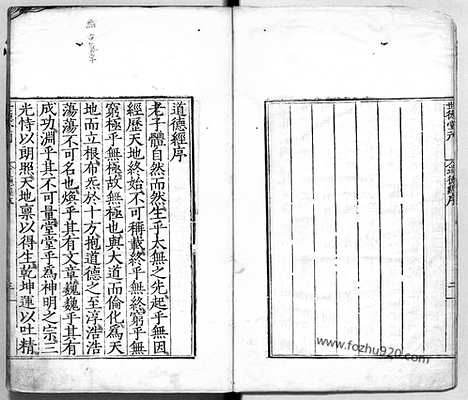 世德堂刊
道德經序
二
道德經序
老子體自然而然生乎太無之先起乎無因
經歷天地終始不可稱載終乎無終窮乎無
窮極乎無極故無極也與大道而倫化為天
地而立根布炁於十方抱道德之至淳浩浩
蕩蕩不可名也煥乎其有文章巍巍乎其有
成功淵乎其不可量堂堂乎為神明之宗三
光恃以朗照天地稟以得生乾坤運以吐精
www.fozhu920.com